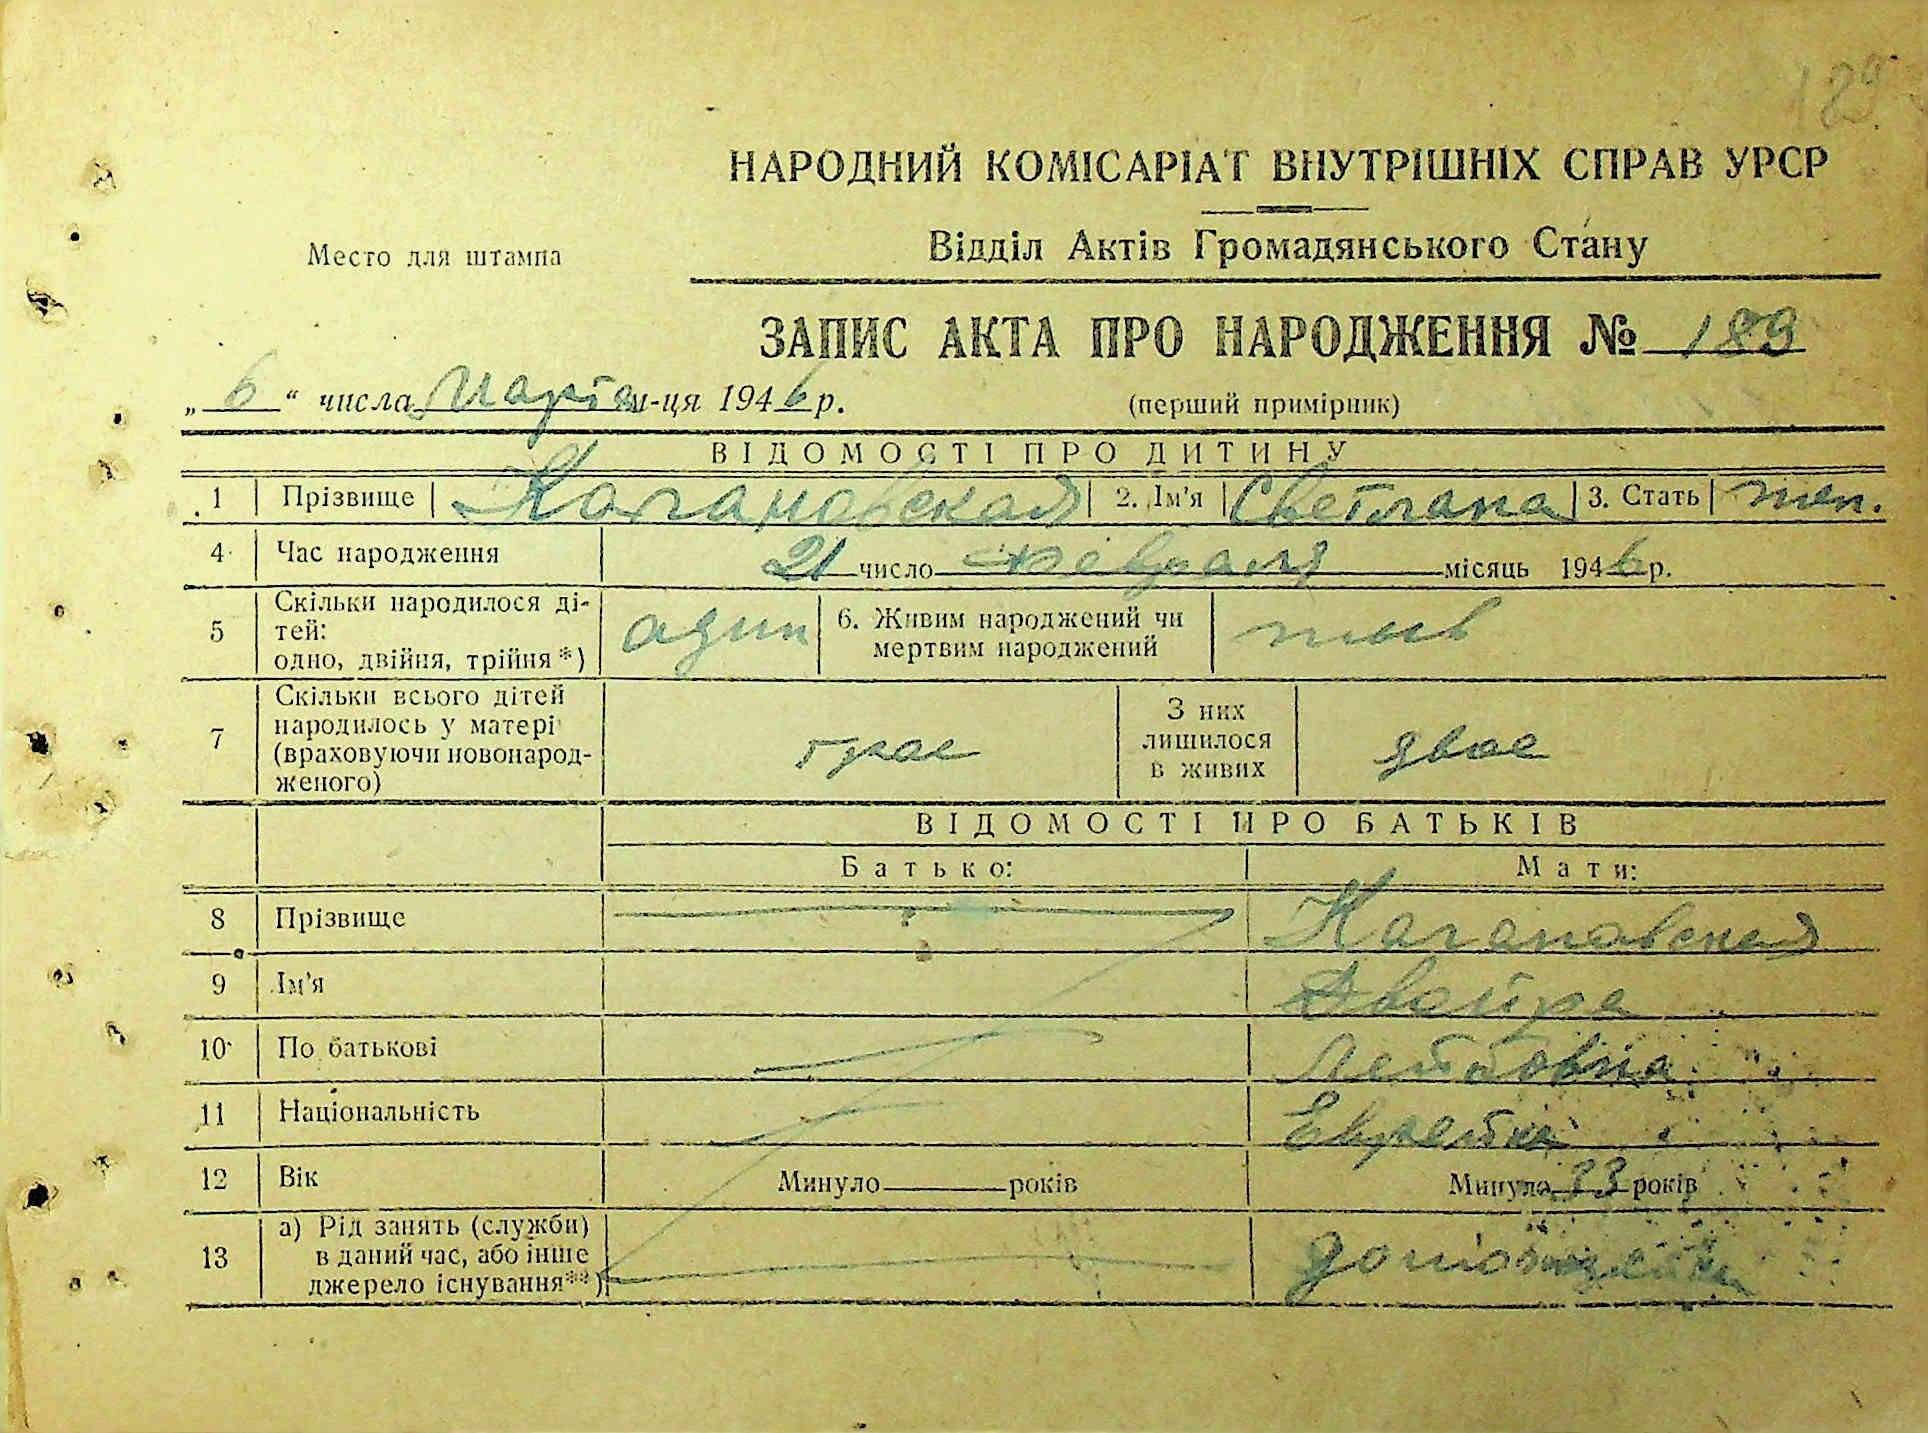 189
НАРОДНИЙ КОМІСАРІАТ ВНУТРІШНІХ СПРАВ УРСР
Место для штампа
Відділ Актів Громадянського Стану
ЗАПИС АКТА ПРО НАРОДЖЕННЯ № 189
„ 6 “ числа Марта м-ця 1946 р.
(перший примірник)
ВІДОМОСТІ ПРО ДИТИНУ
1 Прізвище Кагановская 2. Ім'я Светлана 3. Стать жен.
4 Час народження 21 число февраля місяць 1946 р.
5 Скільки народилося ді-
тей:
одно, двійня, трійня *) один
6. Живим народжений чи
мертвим народжений жив
7 Скільки всього дітей
народилось у матері
(враховуючи новонарод-
женого) трое
З них
лишилося
в живих двое
ВІДОМОСТІ ПРО БАТЬКІВ
Батько: Мати:
8 Прізвище Кагановская
9 Ім'я Двойра
10 По батькові Лейбовна
11 Національність Еврейка
12 Вік Минуло роківМинуло 33 років
13 а) Рід занять (служби)
в даний час, або інше
джерело існування**) домохозяйка